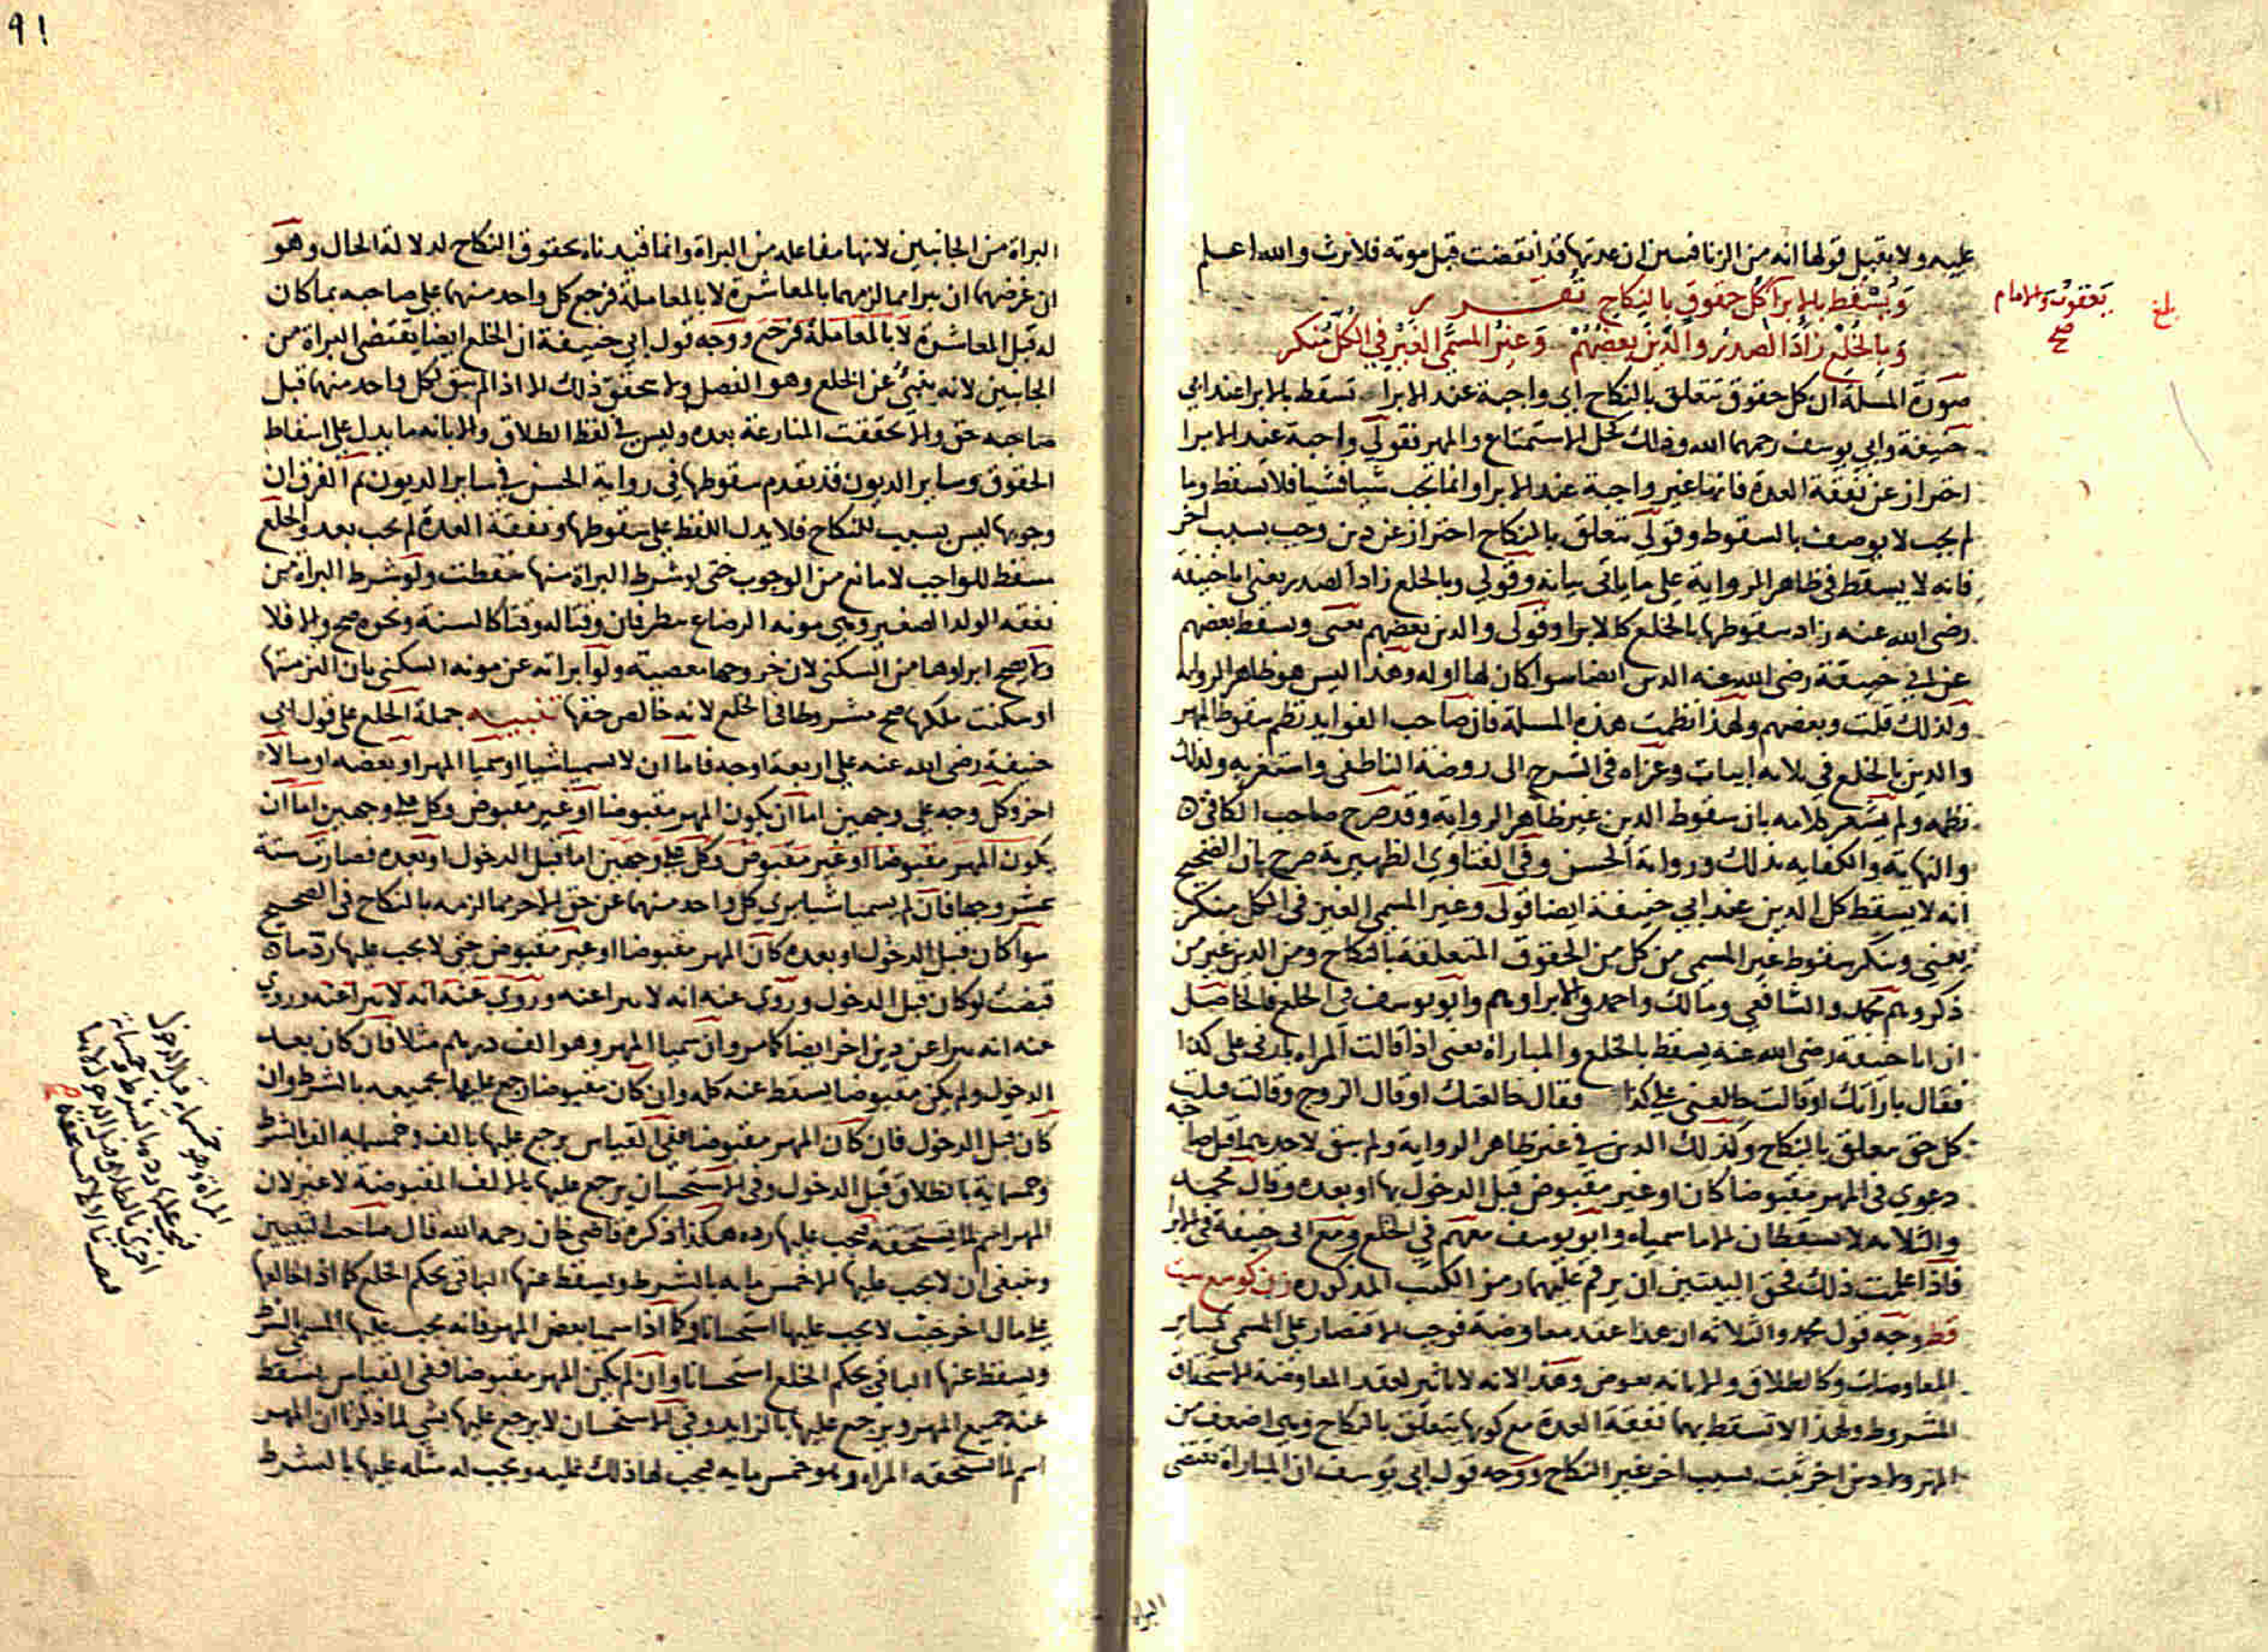 عليه ولا يقبل قولها انه من الزنا فيبين ان عدتها قد انقضت قبل موته فلا يرث والله اعلم
ويسقط بالابرا كل حقوق بالنكاح تقرر
وبالخلع زاد الصدر والدين بعضهم وغير المسمى الغير في الكل منكر
صورة المسلة ان كل حقوق تتعلق بالنكاح اي واجبة عند الابرا تسقط بالابرا عند ابي
حنيفة وابي يوسف رحمهما الله وذلك كحل الاستمتاع والمهر فقولي واجبة عند الابرا
احتراز عن نفقة العدة فانها غير واجبة عند الابرا وانما تجب شيا فشيا فلا تسقط وما
لم يجب لا يوصف بالسقوط وقولي تتعلق بالنكاح احتراز عن دين وجب بسبب اخر
فانه لا يسقط في ظاهر الرواية على ما ياتي بيانه وقولي وبالخلع زاد الصدر يعني ابا حنيفة
رضي الله عنه زاد سقوطها بالخلع كالابرا وقولي والدين بعضهم يعني ويسقط بعضهم
عن ابي حنيفة رضي الله عنه الدين ايضا سوا كان لها او له وهذا ليس هو ظاهر الرواية
ولذلك قلت وبعضهم ولهذا نظمت هذه المسلة فان صاحب الفوايد نظم سقوط المهر
والدين بالخلع في ثلاثة ابيات وعزاه في الشرح الى روضة الناطفي واستغربه ولذلك
نظمه ولم يشعر كلامه بان سقوط الدين غير ظاهر الرواية وقد صرح صاحب الكافي
والنهاية والكفاية بذلك ورواية الحسن وفي الفتاوي الظهيرية صرح بان الصحيح
انه لا يسقط كل الدين عند ابي حنيفة ايضا قولي وغير المسمى الغير في الكل منكر
يعني وينكر سقوط غير المسمى من كل من الحقوق المتعلقة بالنكاح ومن الدين غير من
ذكر وهم محمد والشافعي ومالك واحمد في الابرا وهم وابو يوسف في الخلع فالحاصل
ان ابا حنيفة رضي الله عنه يسقط بالخلع والمباراة يعني اذا قالت المراه بارني على كذا
فقال باراتك او قالت خالعني على كذا فقال خالعتك او قال الزوج وقالت قبلت
كل حق متعلق بالنكاح وكذلك الدين في غير ظاهر الرواية ولم يبق لاحدهما قبل صاحبه
دعوي في المهر مقبوضا كان او غير مقبوض قبل الدخول بها او بعده وقال محمد
والثلاثة لا يسقطان الا ما سمياه وابو يوسف معهم في الخلع ومع ابي حنيفة في الابرا
فاذا علمت ذلك فحق البيتين ان يرقم عليهما رمز الكتب المذكورة
قط وجه قول محمد والثلاثة ان هذا عقد معاوضة فوجب الاقتصار على المسمى كساير
المعاوضات وكالطلاق والابانة بعوض وهذا لانه لا تاثير لعقد المعاوضة الا استحقاق
المشروط ولهذا لا تسقط بهما نفقة العدة مع كونها تتعلق بالنكاح وهي اضعف من
المهر ولا دين اخر ثبت بسبب اخر غير النكاح ووجه قول ابي يوسف ان المباراة تقتضي
يعقوب والامام
صح
بلغ
البراة
٩١
البراة من الجانبين لانها مفاعلة من البراة وانما قيدناه بحقوق النكاح لدلالة الحال وهو
ان غرضهما ان يبرا مما لزمهما بالمعاشرة لا بالمعاملة فرجع كل واحد منهما على صاحبه بما كان
له قبل المعاشرة لا بالمعاملة ووجه قول ابي حنيفة ان الخلع ايضا يقتضي البراة من
الجانبين لانه ينبئ عن الخلع وهو الفصل ولا يتحقق ذلك الا اذا لم يبق لكل واحد منهما قبل
صاحبه حق والا تحققت المنازعة بعده وليس في لفظ الطلاق والابانة ما يدل على اسقاط
الحقوق وساير الديون قد تقدم سقوطها في رواية الحسن في ساير الديون ثم الفرق ان
وجوبها ليس بسبب للنكاح فلا يدل اللفظ على سقوطها ونفقة العدة لم تجب بعد والخلع
مسقط للواجب لا مانع من الوجوب حتى لو شرط البراة منها سقطت ولو شرط البراة من
نفقة الولد الصغير وهي مونة الرضاع ينظر فان وقتا له وقتا كالسنة ونحوه صح والا فلا
ولا يصح ابراوها من السكنى لان خروجها معصية ولو ابراته عن مونة السكنى بان التزمتها
او سكنت ملكها صح مشروطا في الخلع لانه خالص حقها تنبيه جملة الخلع على قول ابي
حنيفة رضي الله عنه على اربعة اوجه فاما ان لا يسميا شيا او سميا المهر او بعضه او مالا
اخر وكل وجه على وجهين اما ان يكون المهر مقبوضا او غير مقبوض وكل على وجهين اما ان
يكون المهر مقبوضا او غير مقبوض وكل على وجهين اما قبل الدخول او بعده فصارت ستة
عشر وجها فان لم يسميا شيا يبري كل واحد منهما عن حق الاخر مما لزمه بالنكاح في الصحيح
سوا كان قبل الدخول او بعده كان المهر مقبوضا او غير مقبوض حتى لا يجب عليها رد ما
قبضت لو كان قبل الدخول وروي عنه انه لا يبرا عنه وروي عنه انه لا يبرا عنه وروي
عنه انه يبرا عن دين اخر ايضا كما مر وان سميا المهر وهو الف درهم مثلا فان كان بعد
الدخول ولم يكن مقبوضا يسقط عنه كله وان كان مقبوضا رجع عليها بجميعه بالشرط وان
كان قبل الدخول فان كان المهر مقبوضا ففي القياس يرجع عليها بالف وخمسماية الف بالشرط
وخمسماية بالطلاق قبل الدخول وفي الاستحسان يرجع عليها بالالف المقبوضة لا غير لان
المهر اسم لما تستحقه فيجب عليها رده هكذا ذكره قاضي خان رحمه الله قال صاحب التبيين
وينبغي ان لا يجب عليها الا خمس ماية بالشرط ويسقط عنها الباقي بحكم الخلع كما اذا خالعها
على مال اخر حيث لا يجب عليها استحسانا وكما اذا سميا بعض المهر فانه يجب عليها المسمى بالشرط
ويسقط عنها الباقي بحكم الخلع استحسانا وان لم يكن المهر مقبوضا ففي القياس يسقط
عنه جميع المهر ويرجع عليها بالزايد وفي الاستحسان لا يرجع عليها بشي لما ذكرنا ان المهر
اسم لما تستحقه المراه وهو خمس ماية فيجب لها ذلك عليه ويجب له مثله عليها بالشرط
المراة وهو خمسماية قبل الدخول
فيجب عليها ردها بالشرط وخمسماية
اخرى بالطلاق قبل الدخول
صح